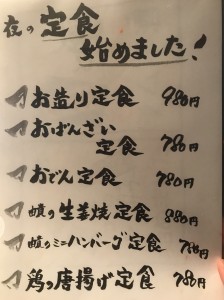 夜の定食
始めました!
お造り定食 980円
おばんざい
定食 780円
おでん定食 780円
の生姜焼定食 880円
のミニハンバーグ定食 780円
鶏の唐揚げ定食 780円